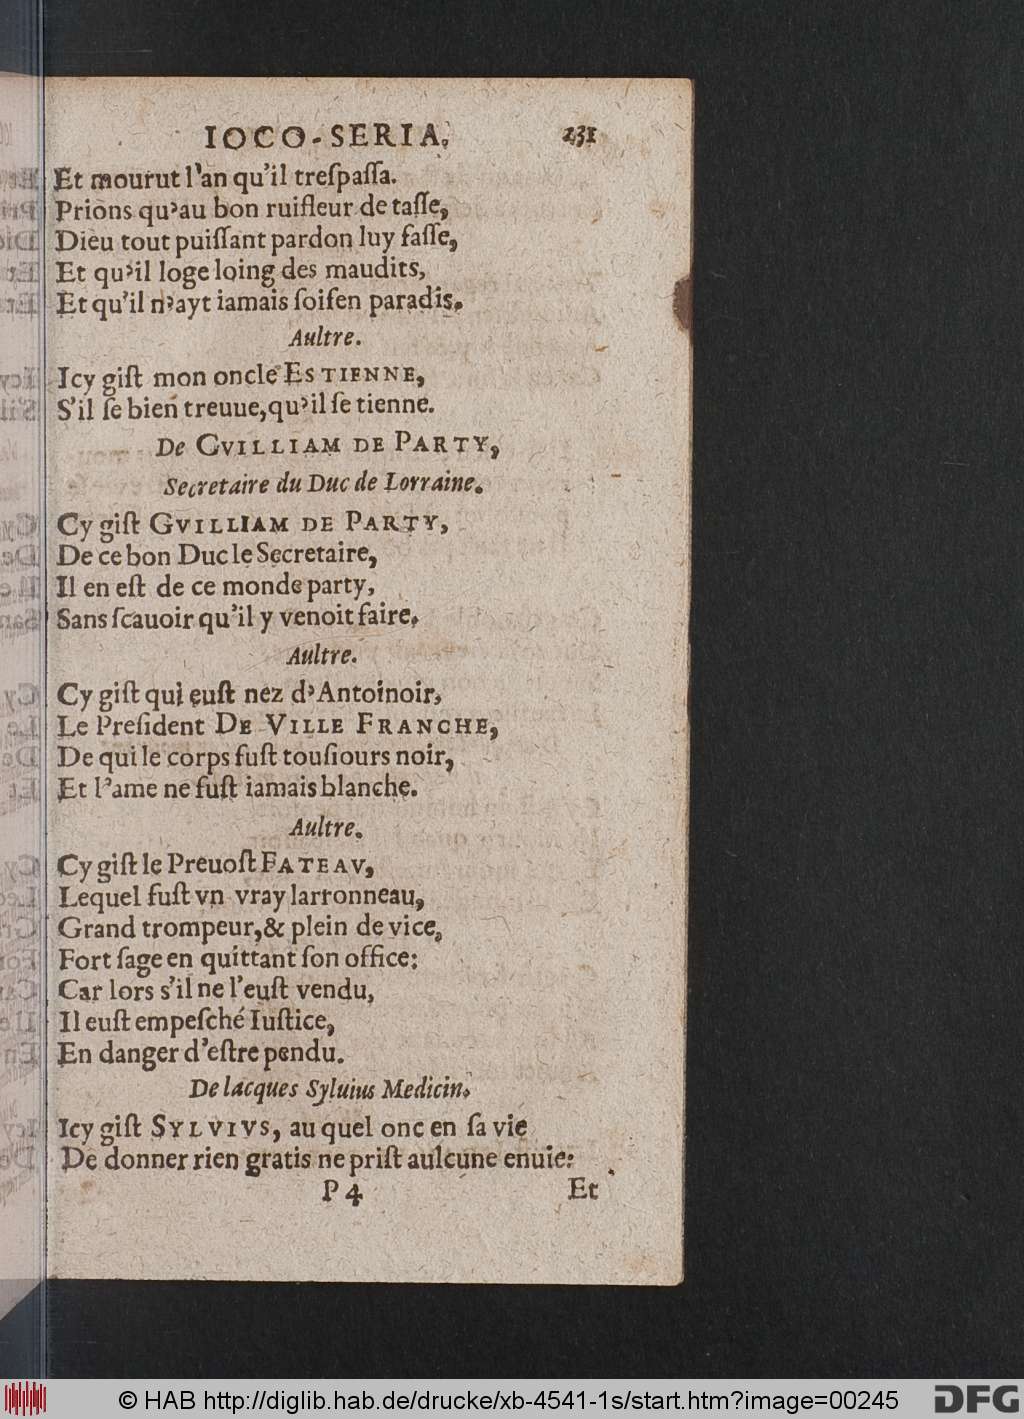 IOCO-SERIA. 231
Et mourut l'an qu'il treſpaſſa.
Prions qu'au bon ruifleur de taſſe,
Dieu tout puiſſant pardon luy faſſe,
Et qu'il loge loing des maudits,
Et qu'il n'ayt iamais ſoifen paradis.
Aultre.
Icy giſt mon oncle ESTIENNE,
S'il ſe bien treuue, qu'il ſe tienne.
De GVILLIAM DE PARTY,
Secretaire du Duc de Lorraine.
Cy giſt GVILLIAM DE PARTY,
De ce bon Duc le Secretaire,
Il en eſt de ce monde party,
Sans ſcauoir qu'il y venoit faire.
Aultre.
Cy giſt qui euſt nez d'Antoinoir,
Le Preſident DE VILLE FRANCHE,
De qui le corps fuſt touſiours noir,
Et l'ame ne fuſt iamais blanche.
Aultre.
Cy giſt le Preuoſt FATEAV,
Lequel fuſt vn vray larronneau,
Grand trompeur, & plein de vice,
Fort ſage en quittant ſon office:
Car lors s'il ne l'euſt vendu,
Il euſt empeſché Iuſtice,
En danger d'eſtre pendu.
De Iacques Syluius Medicin.
Icy giſt SYLVIVS, au quel onc en ſa vie
De donner rien gratis ne priſt aulcune enuie:
P 4 Et
© HAB http://diglib.hab.de/drucke/xb-4541-1s/start.htm?image=00245 DFG